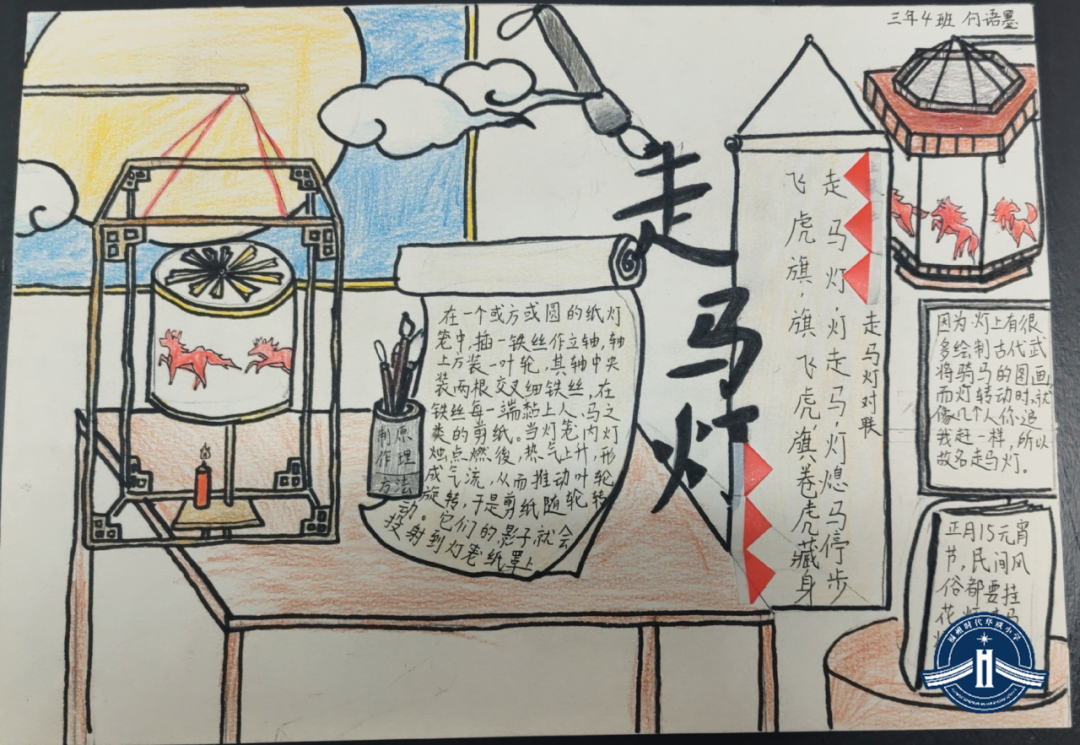 三年4班 何语墨
走马灯
在一个或方或圆的纸灯
笼中,插一铁丝作立轴,轴
上方装一叶轮,其轴中央
装两根交叉细铁丝,在
铁丝每一端黏上人、马之
类的剪纸。当灯笼内灯
烛点燃後,热气上升,形
成气流,从而推动叶轮
旋转,于是剪纸随轮转
动。它们的影子就会
投射到灯笼纸罩上
制作方法
原理
走马灯,灯走马,灯熄马停步
飞虎旗,旗飞虎,旗卷虎藏身
走马灯对联
因为灯上有很
多绘制古代武
将骑马的图画,
而灯转动时,就
像几个人你追
我赶一样,所以
故名走马灯。
正月15元宵
节,民间风
俗都要挂
花